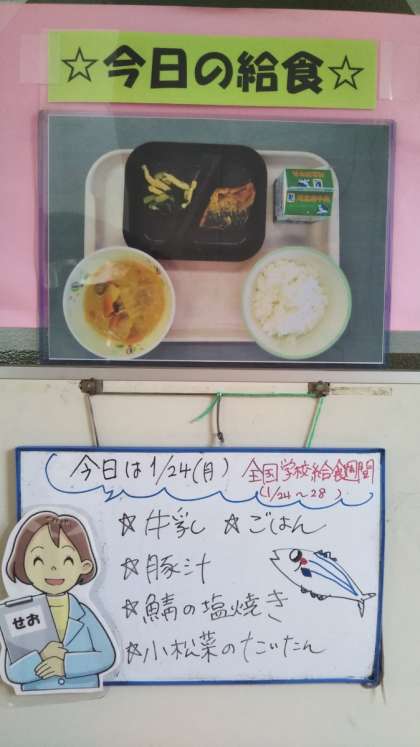 ☆今日の給食☆
今日は1/24(月) 全国学校給食週間
(1/24～28)
☆牛乳 ☆ごはん
☆豚汁
☆鯖の塩焼き
☆小松菜のたいたん
せお